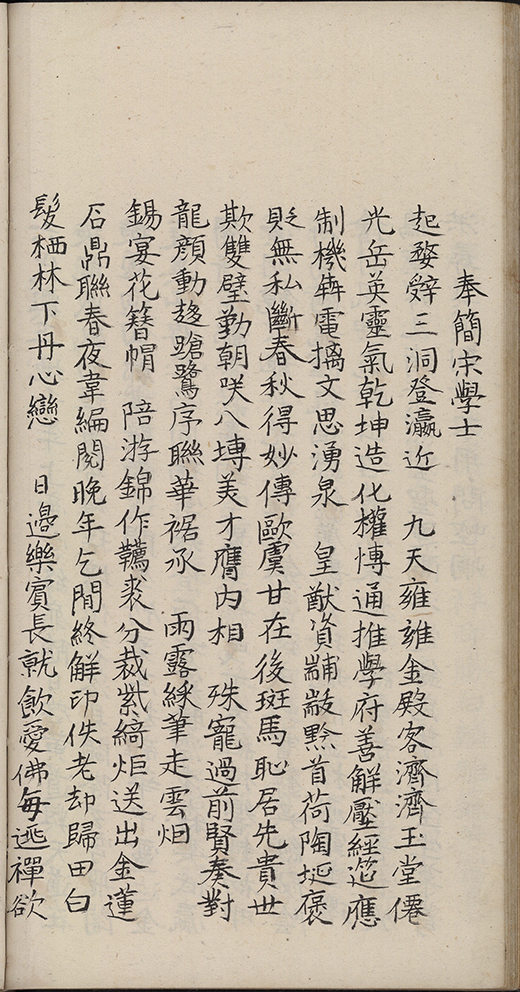 奉簡宋學士
起婺辤三洞登瀛近　九天雍雍金殿客濟濟玉堂僊
光岳英靈氣乾坤造化權愽通推學府善解壓經筵應
制機犇電摛文思湧泉　皇猷資黼黻黔首荷陶埏褒
貶無私斷春秋得妙傳歐虞甘在後斑馬恥居先貴世
欺雙璧勤朝咲八塼美才膺內相　殊寵過前賢奏對
龍顔動趍蹌鷺序聯華裾承　雨露綵筆走雲烟
錫宴花簪帽　陪游錦作韉裘分裁紫綺炬送出金蓮
石鼎聯春夜韋編閱晚年乞閒終觧印佚老却歸田白
髮栖林下丹心戀　日邊樂賓長就飲愛佛每逃禪欲